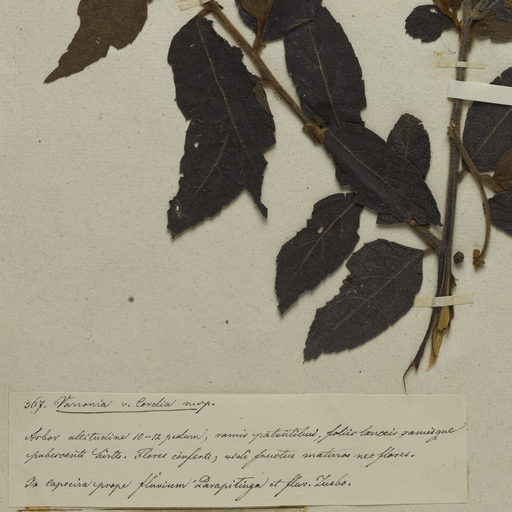 367. Varronia v. Cordia n. sp.
Arbor altitudine 10-12 pedum, ramis patentibus, foliis lanceis ramisque
pubescenti hirtis. Flores conferti, vidi fructus maturos nec flores.
In capoeira prope fluvium Parapitinga et fluv. Turbo.